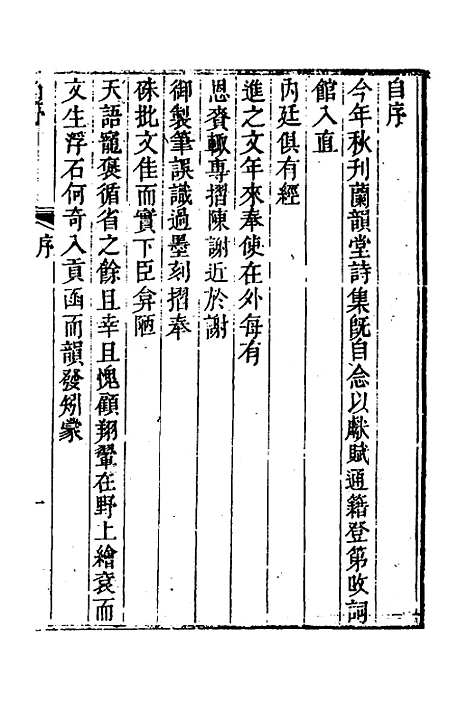 自序
今年秋刊蘭韻堂詩集旣自念以獻賦通籍登第改詞
館入直
內廷俱有經
進之文年來奉使在外每有
恩賚輙專摺陳謝近於謝
御製筆誤識過墨刻摺奉
硃批文佳而實下臣弇陋
天語寵褒循省之餘且幸且愧顧翔翬在野上繪袞而
文生浮石何奇入貢函而韻發矧蒙
序
一